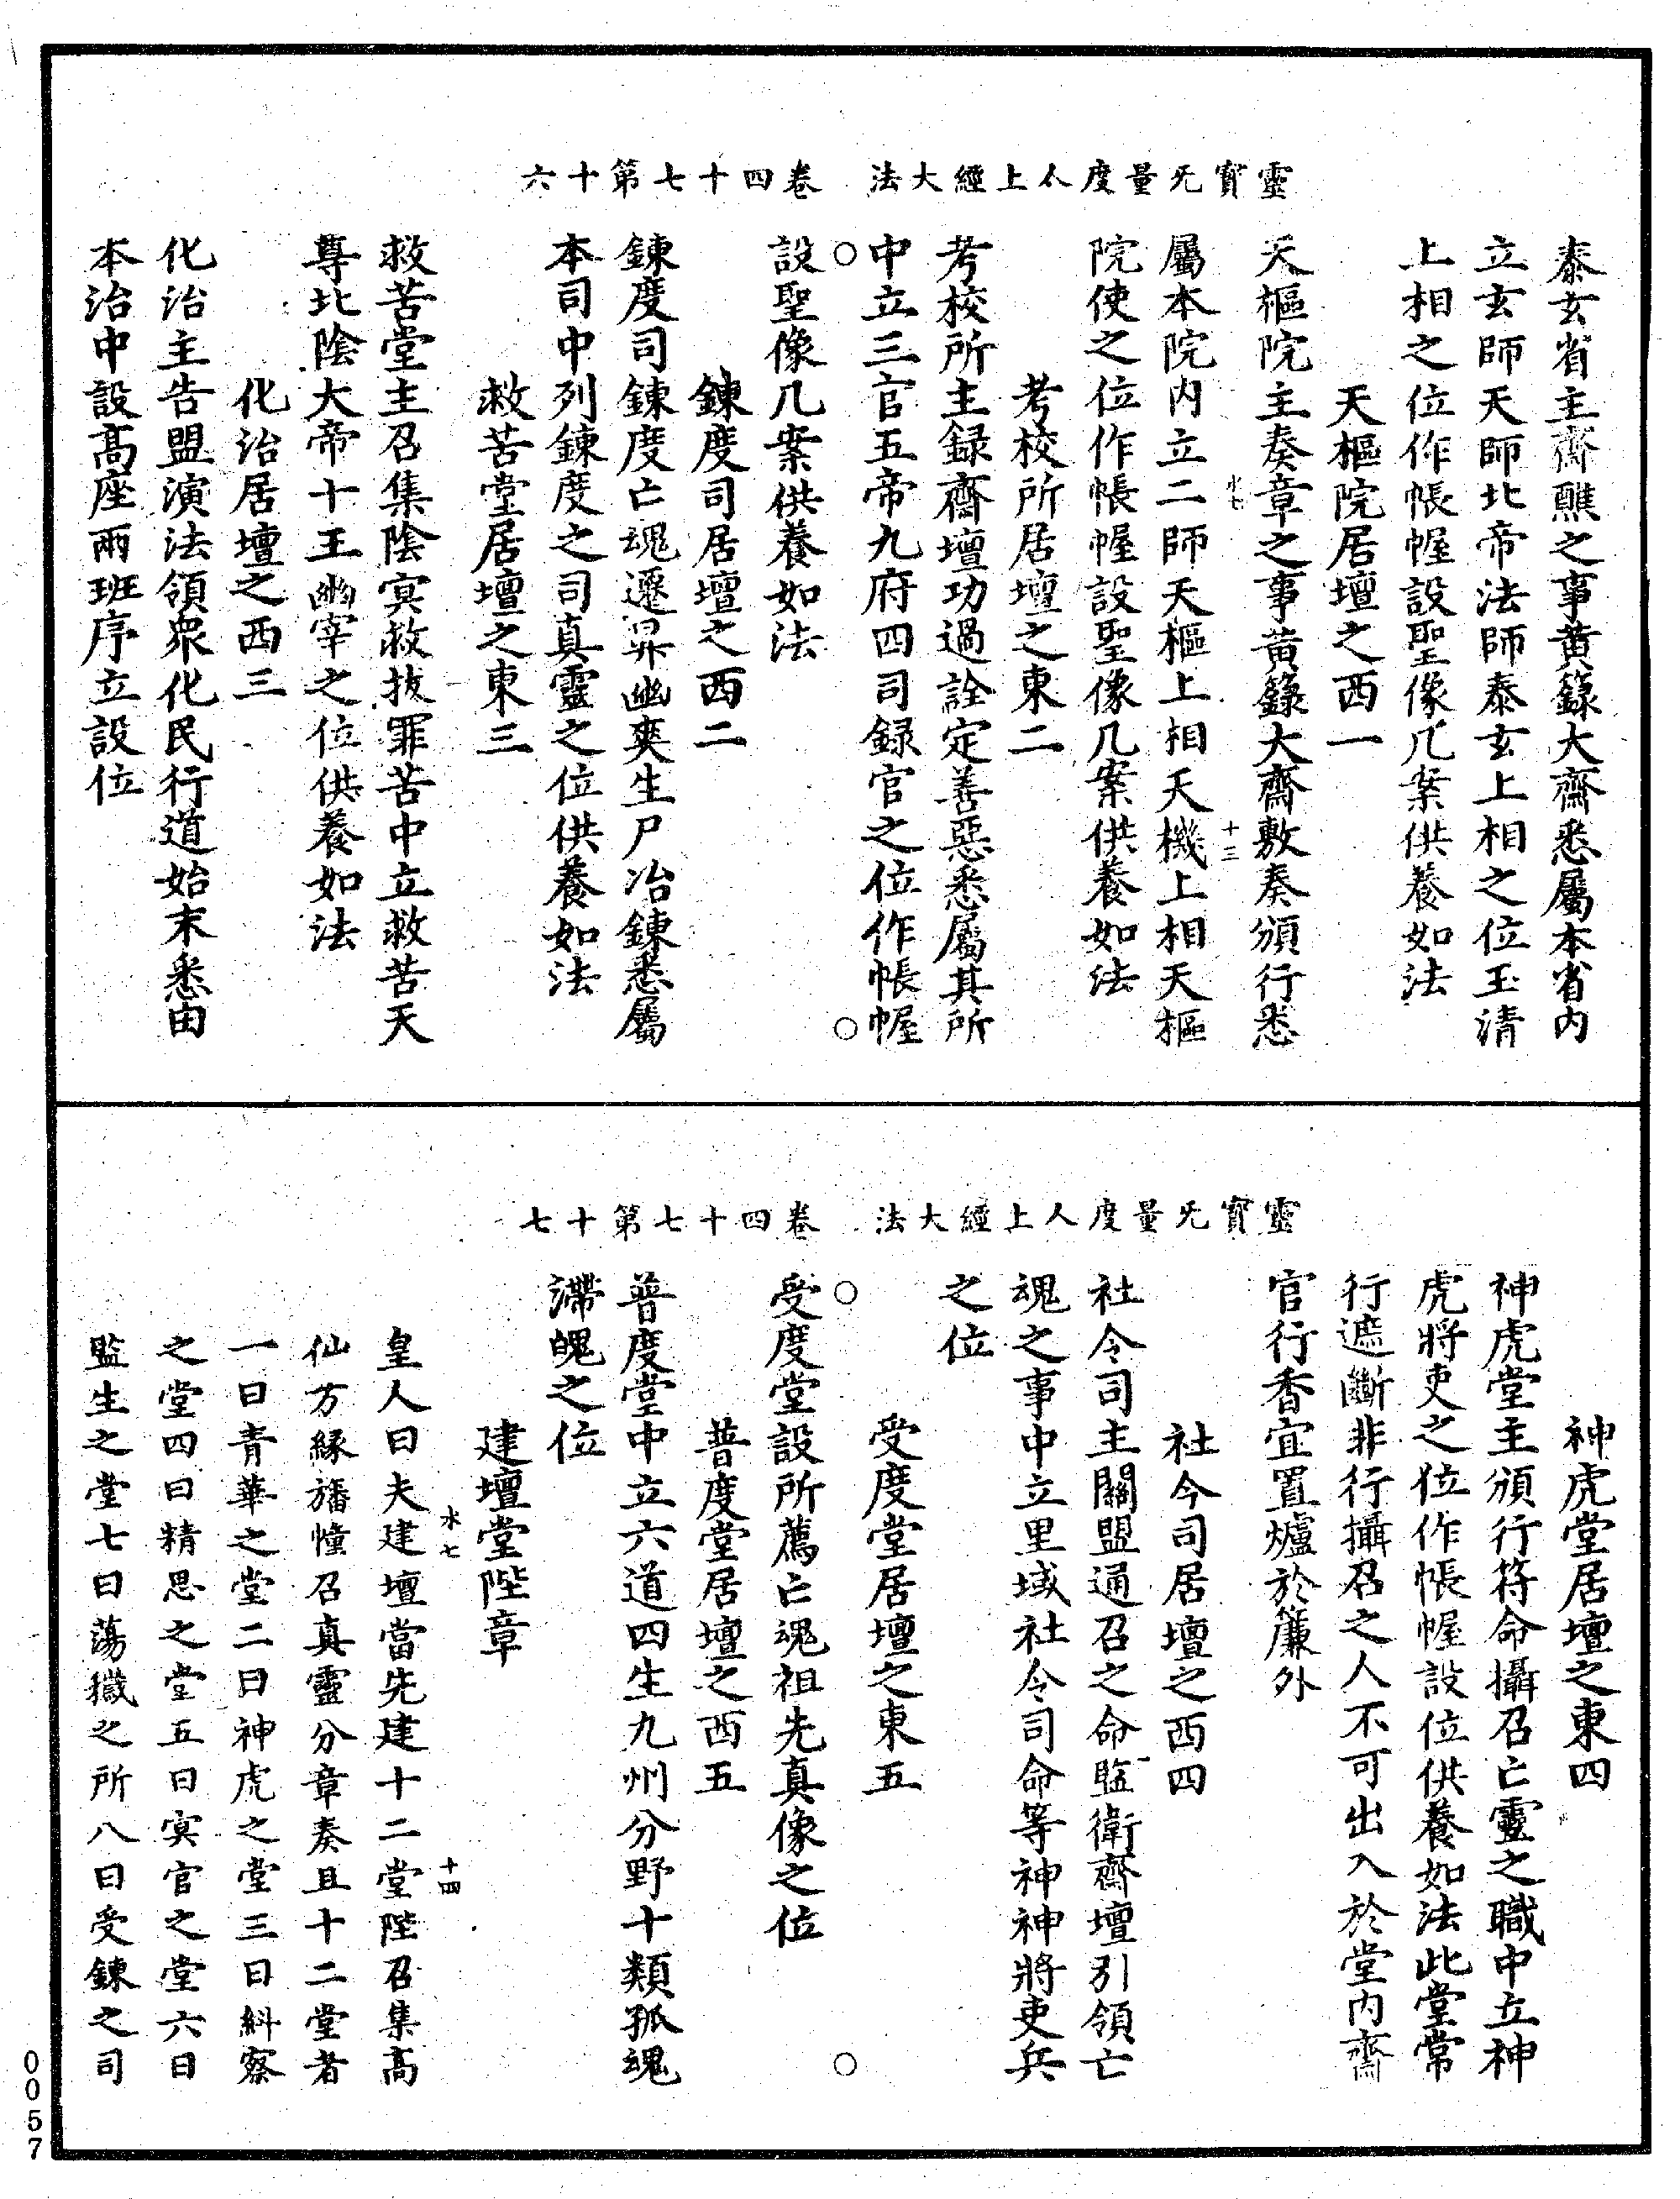 靈寳无量度人上經大法　卷四十七第十六
泰玄省主齋醮之事黄籙大齋悉屬本省内
立玄師天師北帝法師泰玄上相之位玉清
上相之位作帳幄設聖像几案供養如法
天樞院居壇之西一
天樞院主奏章之事黄籙大齋敷奏頒行悉
水七　十三
屬本院内立二師天樞上相天機上相天樞
院使之位作帳幄設聖像几案供養如法
考校所居壇之東二
考校所主録齋壇功過詮定善惡悉屬其所
中立三官五帝九府四司録官之位作帳幄
○　○
設聖像几案供養如法
鍊度司居壇之西二
鍊度司鍊度亡魂遷昇幽爽生尸冶鍊悉屬
本司中列鍊度之司真靈之位供養如法
救苦堂居壇之東三
救苦堂主召集陰冥救拔罪苦中立救苦天
尊北陰大帝十王幽宰之位供養如法
化治居壇之西三
化治主告盟演法領衆化民行道始末悉由
本治中設髙座兩班序立設位
靈寳无量度人上經大法　卷四十七第十七
神虎堂居壇之東四
神虎堂主頒行符命攝召亡靈之職中立神
虎將吏之位作帳幄設位供養如法此堂常
行遮斷非行攝召之人不可出入於堂内齋
官行香宜置爐於簾外
社令司居壇之西四
社令司主關盟通召之命監衛齋壇引領亡
魂之事中立里域社令司命等神神將吏兵
之位
受度堂居壇之東五
○　○
受度堂設所薦亡魂祖先真像之位
普度堂居壇之西五
普度堂中立六道四生九州分野十類孤魂
滯魄之位
建壇堂陛章
水七　十四
皇人曰夫建壇當先建十二堂陛召集髙
仙方縁旛幢召真靈分章奏且十二堂者
一曰青華之堂二曰神虎之堂三曰糾察
之堂四曰精思之堂五曰冥官之堂六曰
監生之堂七曰蕩穢之所八曰受鍊之司
0057